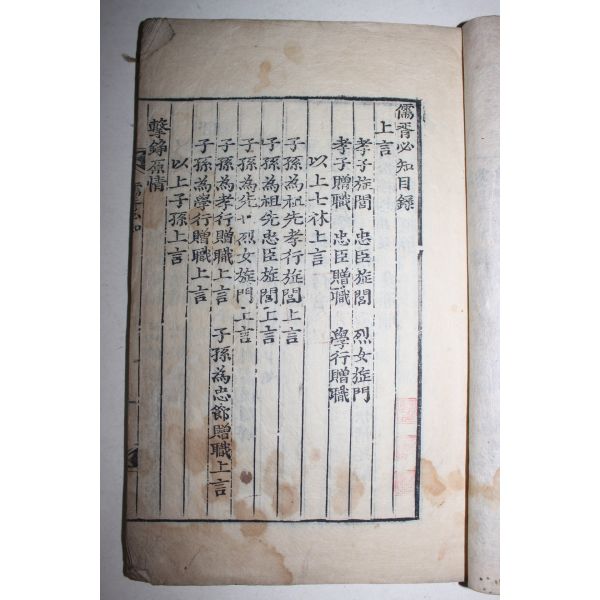 儒胥必知目錄
上言
孝子旌閭 忠臣旌閭 烈女旌門
孝子贈職 忠臣贈職 學行贈職
以上士林上言
子孫為祖先孝行旌閭上言
子孫為祖先忠臣旌閭上言
子孫為先 烈女旌門上言
子孫為孝行贈職上言 子孫為忠節贈職上言
子孫為學行贈職上言
以上子孫上言
擊錚原情